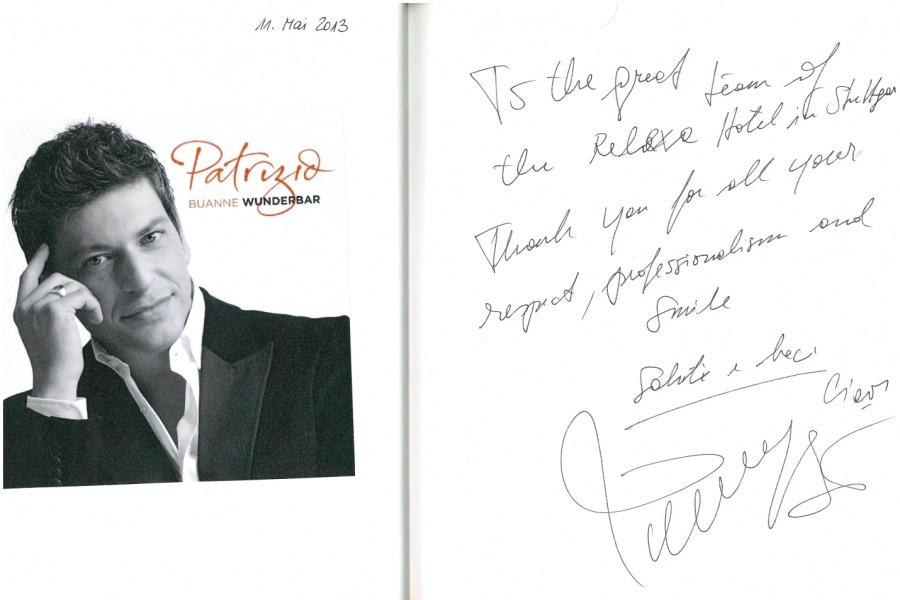 11. Mai 2013
Patrizio
BUANNE WUNDERBAR
To the great team of
the Relaxa Hotel in Stuttgar
Thank you for all your
respect, professionalism and
smile
Saluti e baci
Ciao